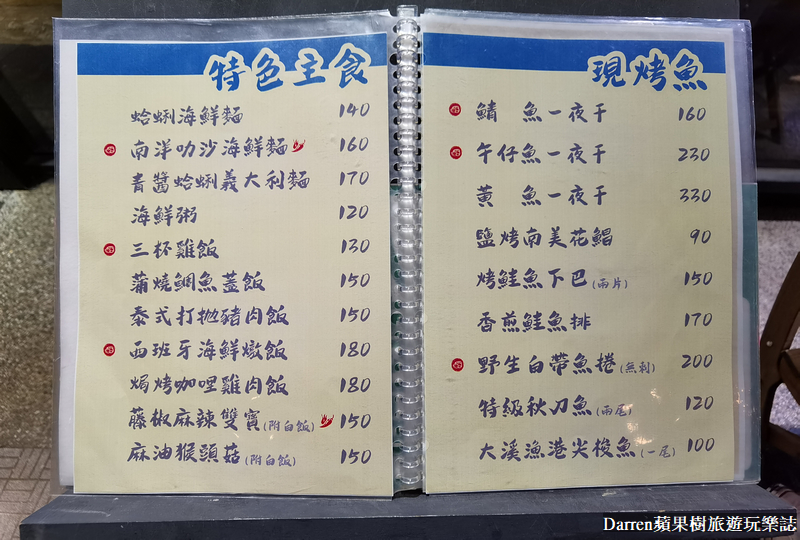 特色主食
蛤蜊海鮮麵 140
南洋叻沙海鮮麵 160
青醬蛤蜊義大利麵 170
海鮮粥 120
三杯雞飯 130
蒲燒鯛魚蓋飯 150
泰式打拋豬肉飯 150
西班牙海鮮燉飯 180
焗烤咖哩雞肉飯 180
藤椒麻辣雙寶(附白飯) 150
麻油猴頭菇(附白飯) 150
現烤魚
鯖 魚一夜干 160
午仔魚一夜干 230
黃 魚一夜干 330
鹽烤南美花鯧 90
烤鮭魚下巴(兩片) 150
香煎鮭魚排 170
野生白帶魚捲(無刺) 200
特級秋刀魚(兩尾) 120
大溪漁港尖梭魚(一尾) 100
Darren蘋果樹旅遊玩樂誌